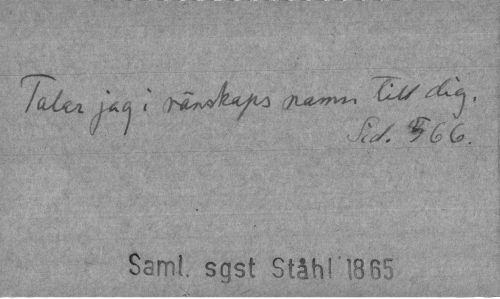 Talar jag i vänskaps namn till dig.
Sid. 566.
Saml. sgst Ståhl 1865